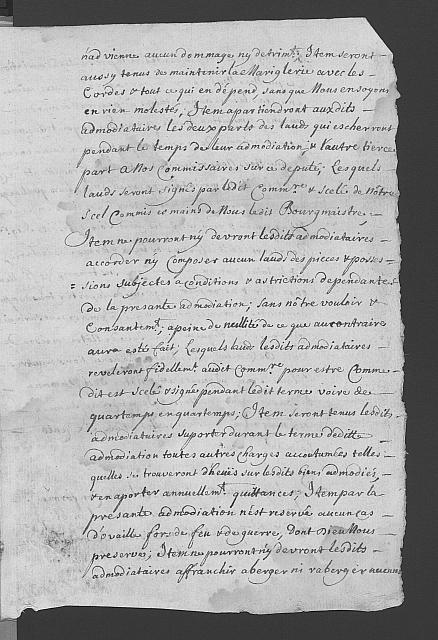 nad vienne aucun dommage ny detrimt; Item seront
aussy tenus de maintenir la Mariglerie avec les
Cordes & tout ce qui en depend, sans que Nous en soyons
en rien molestés; Item apartiendront auxdits
admodiataires les deux parts des lauds qui escherront
pendant le temps de leur admodiation; & l'autre tierce
part a Nos Commissaires sur ce deputé; Lesquels
lauds seront signés par ledit Commre & scelé de Nôtre
Scel Commis es mains de Nous ledit Bourgmaistre.
Item ne pourront ny devront lesdits admodiataires
accorder ny Composer aucun lauds des pieces & posses-
=sions subjectes a conditions & astrictions dependantes
de la presante admodiation; sans nôtre vouloir &
Consantemt; a peine de nullité de ce que au contraire
aura esté fait; Lesquels lauds lesdits admodiataires
reveleront fidellemt audit Commre pour estre Comme
dit est scelé & signé pendant ledit terme voire de
quartemps en quartemps; Item seront tenus lesdits
admodiataires suporter durant le terme de ditte
admodiation toutes autres charges accoutumées telles
quelles se trouveront dheües sur lesdits biens admodiés,
& en aporter annuellemt quittances; Item par la
presante admodiation n'est reservé aucun cas
d'ovaille fors de feu & de guerre, dont Dieu Nous
preserve; Item ne pourront ny devront lesdits
admodiataires affranchir aberger ni raberger aucuns